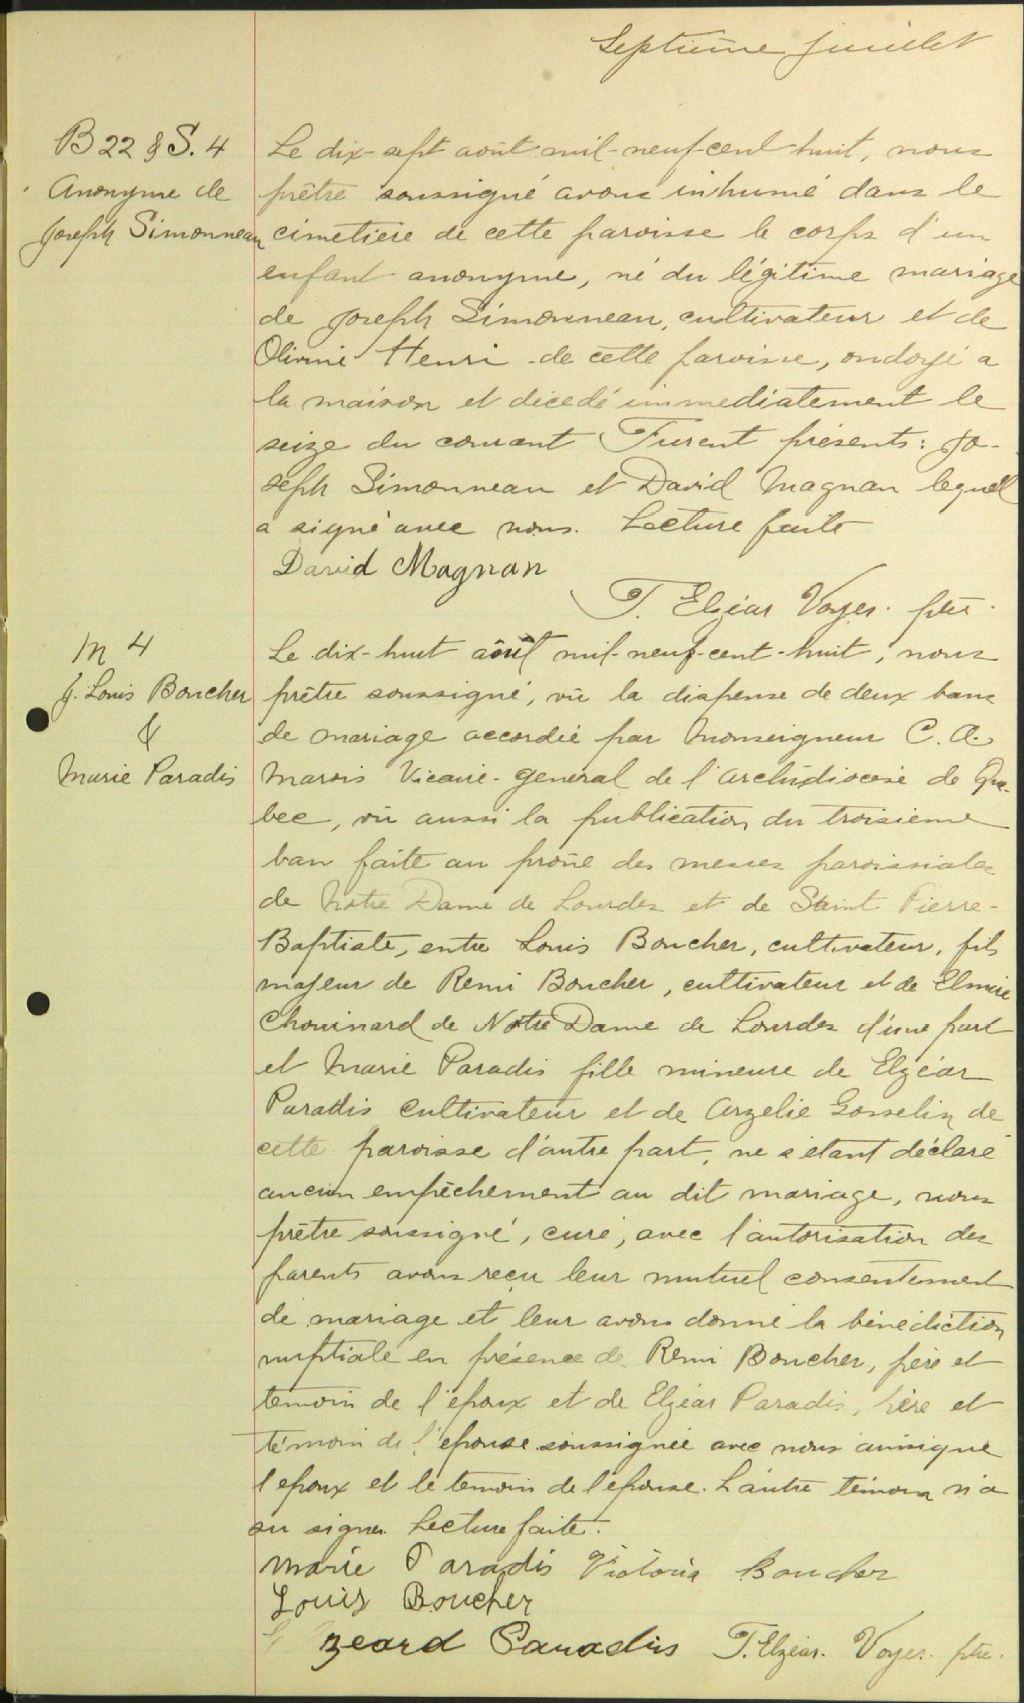 Septième feuillet
B 22 & S. 4
Anonyme de
Joseph Simonneau
Le dix-sept août mil-neuf-cent-huit, nous
prêtre soussigné avons inhumé dans le
cimetière de cette paroisse le corps d'un
enfant anonyme, né du légitime mariage
de Joseph Simonneau, cultivateur et de
Olivine Henri de cette paroisse, ondoyé a
la maison et décédé immediatement le
seize du courant Furent présents: Jo-
seph Simonneau et David Magnan lequel
a signé avec nous. Lecture faite
David Magnan
T. Elzéar Voyer. ptre.
M 4
J. Louis Boucher
&
Marie Paradis
Le dix-huit août mil-neuf-cent-huit, nous
prêtre soussigné, vu la dispense de deux bans
de mariage accordée par Monseigneur C. A.
Marois Vicaire-general de l'archidiocèse de Qué-
bec, vu aussi la publication du troisième
ban faite au prône des messes paroissiales
de Notre Dame de Lourdes et de Saint Pierre-
Baptiste, entre Louis Boucher, cultivateur, fils
majeur de Remi Boucher, cultivateur et de Elmire
Chouinard de Notre Dame de Lourdes d'une part
et Marie Paradis fille mineure de Elzéar
Paradis cultivateur et de Arzelie Gosselin de
cette paroisse d'autre part, ne s'etant déclaré
aucun empêchement au dit mariage, nous
prêtre soussigné, curé, avec l'autorisation des
parents avons reçu leur mutuel consentement
de mariage et leur avons donné la bénédiction
nuptiale en présence de Remi Boucher, père et
temoin de l'époux et de Elzéar Paradis, père et
témoin de l'épouse soussignée avec nous ainsique
l'epoux et le temoin de l'épouse. L'autre témoin n'a
su signer. Lecture faite.
Marie Paradis Victoria Boucher
Louis Boucher
zeard Paradis T. Elzéar. Voyer. ptre.